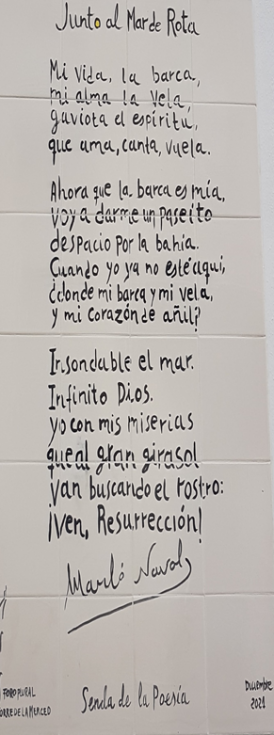 Junto al Mar de Rota
Mi vida, la barca,
mi alma la vela,
gaviota el espíritu,
que ama, canta, vuela.
Ahora que la barca es mía,
voy a darme un paseíto
despacio por la bahía.
Cuando yo ya no esté aquí,
¿dónde mi barca y mi vela,
y mi corazón de añil?
Insondable el mar.
Infinito Dios.
yo con mis miserias
que al gran girasol
van buscando el rostro:
¡Ven, Resurrección!
FORO PLURAL
TORRE DE LA MERCED
Senda de la Poesía
Diciembre
2021